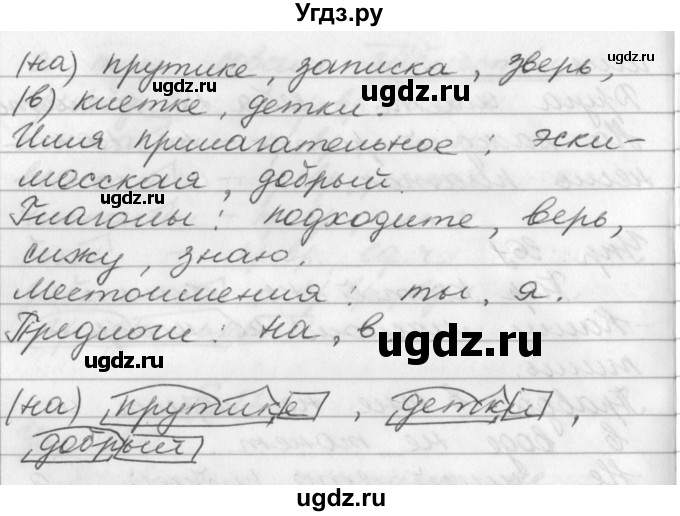 Угдз.ру
(на) прутике, записка, зверь,
(в) клетке, детки.
Имя прилагательное: эски-
мосская, добрый.
Глаголы: подходите, верь,
сижу, знаю.
Местоимения: ты, я.
Предлоги: на, в
(на) прутике, детки,
добрый
ugdz.ru
ugdz.ru
ugdz.ru
ugdz.ru
ugdz.ru
ugdz.ru
ugdz.ru
ugdz.ru